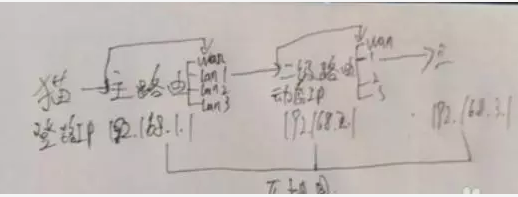 wan
wan
猫 主路由 lan1 二级路由 1 三
lan2 2
lan3 3
动态IP
登陆IP 192.168.1.1 192.168.2.1 192.168.3.1